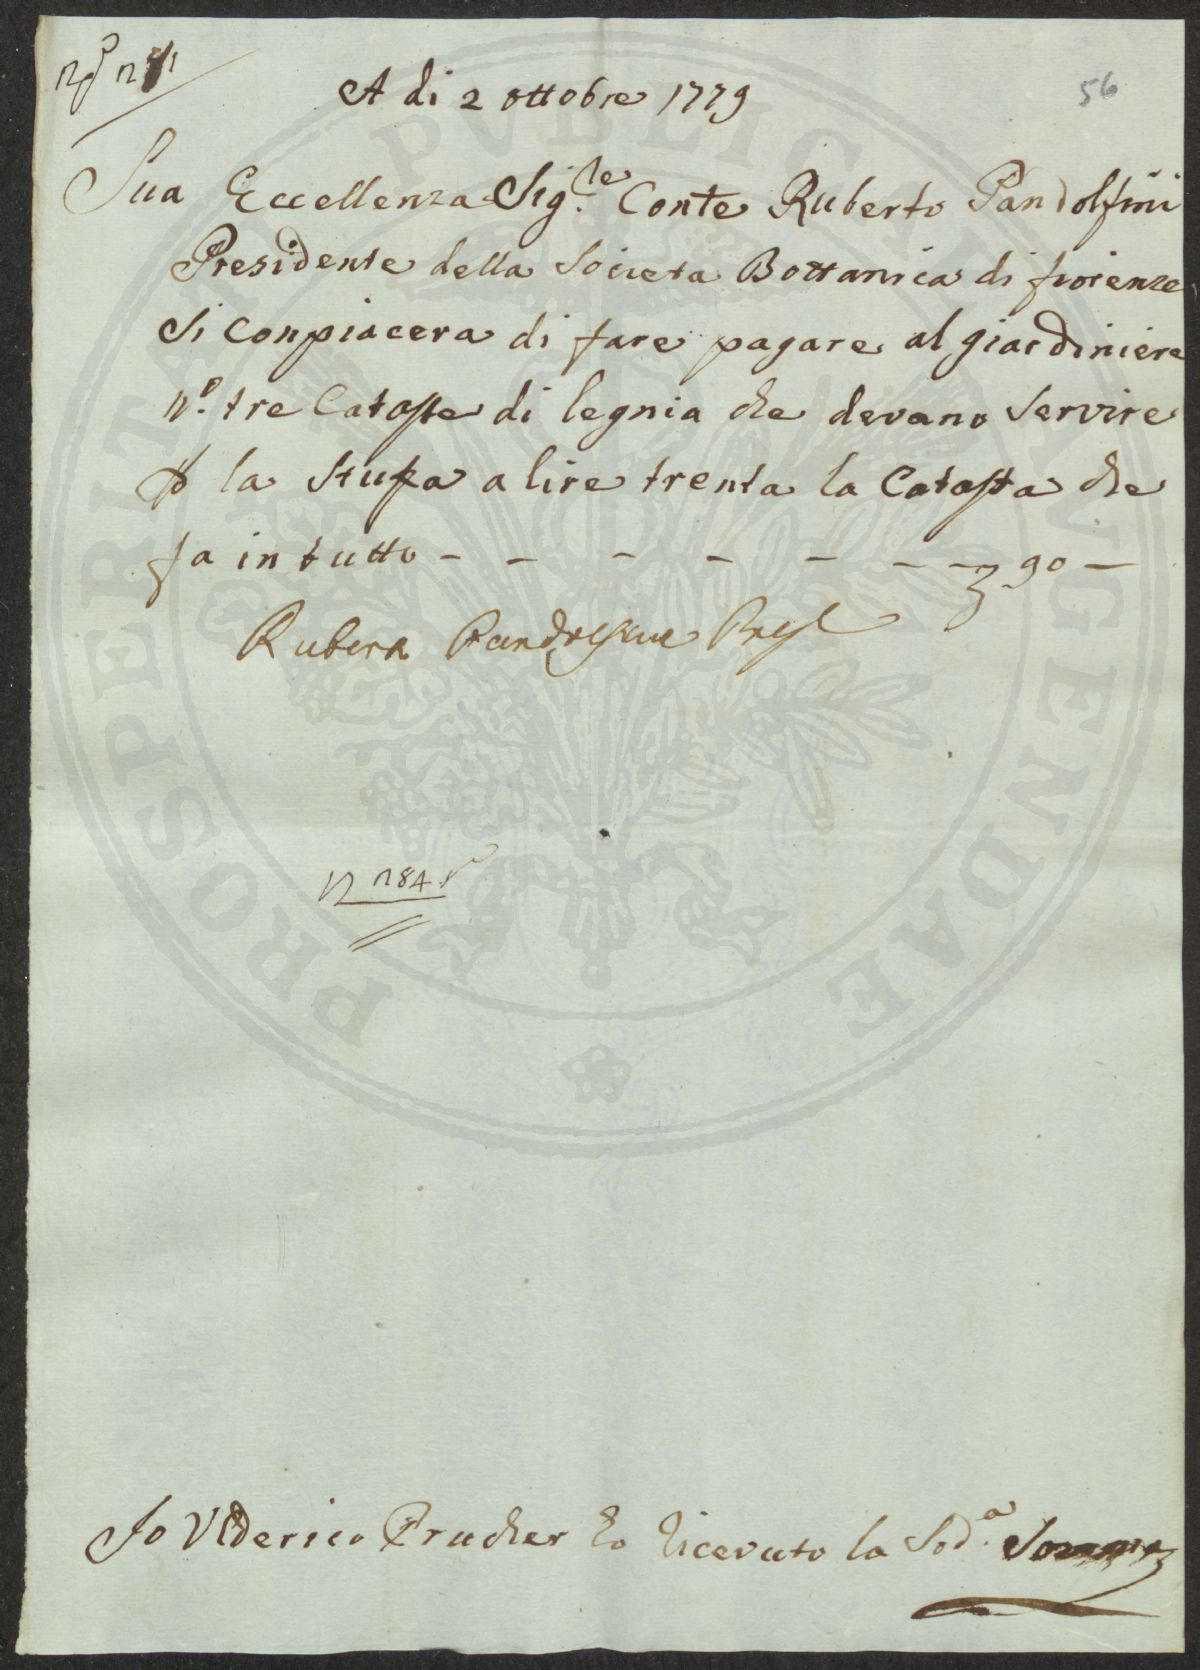 56
A di 2 ottobre 1779
Sua Eccellenza Sig.re Conte Ruberto Pandolfini
Presidente della Societa Bottanica di fiorenze
Si Conpiacera di fare pagare al giardiniere
N.o tre Cataste di legnia che devano Servire
p la Stufa a lire trenta la Catasta che
fa in tutto - - - - - - - 90 -
Pandolfini Presl
N 284
Io Ulderico Prucher ho riceuto la Sod.a Somma
PROSPERITATI PVBLICAE AVGENDAE